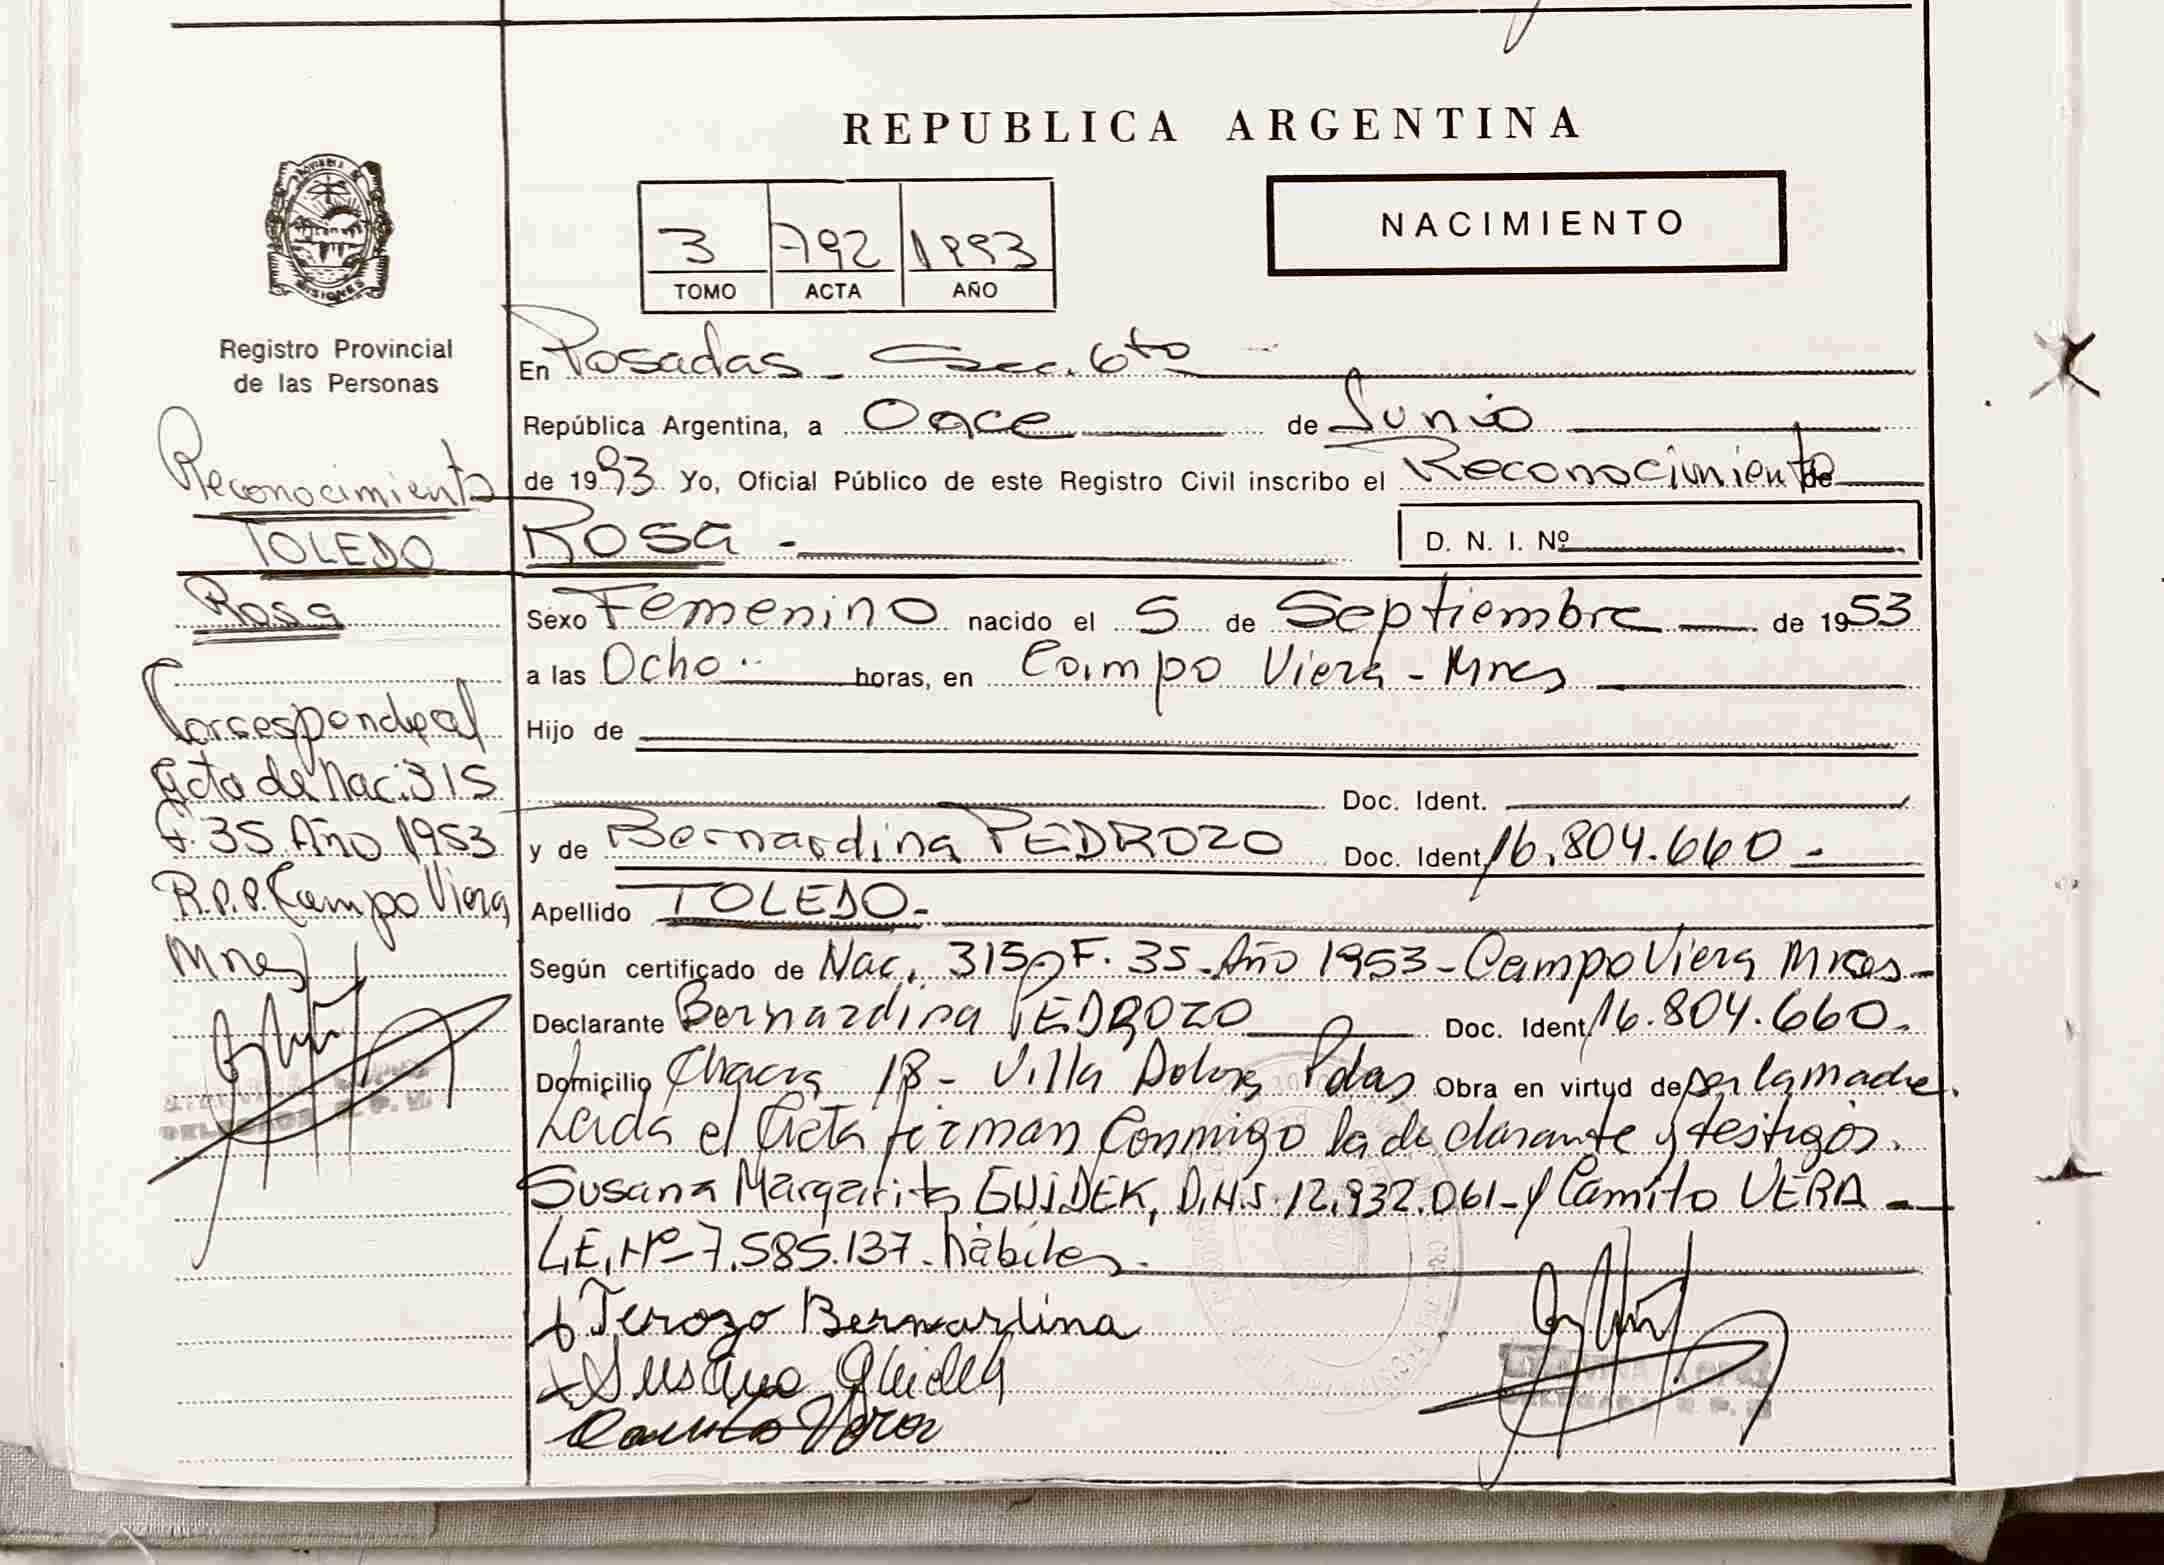 REPUBLICA ARGENTINA
NACIMIENTO
3 792 1993
TOMO ACTA AÑO
MISIONES
Registro Provincial
de las Personas
Reconocimiento
TOLEDO
Rosa
Corresponde al
acta de Nac. 315
F. 35 Año 1953
R.P.P. Campo Viera
Mnes
En Posadas - Sec. 6to
República Argentina, a Once de Junio
de 1993 Yo, Oficial Público de este Registro Civil inscribo el Reconocimiento de
Rosa - D. N. I. Nº
Sexo Femenino nacido el 5 de Septiembre de 1953
a las Ocho horas, en Campo Viera - Mnes
Hijo de
Doc. Ident.
y de Bernardina PEDROZO Doc. Ident. 16.804.660 -
Apellido TOLEDO -
Según certificado de Nac. 315 F. 35 - Año 1953 - Campo Viera Mnes -
Declarante Bernardina PEDROZO Doc. Ident. 16.804.660.
Domicilio Chacra 18 - Villa Dolores Pdas Obra en virtud de ser la madre.
Leida el Acta firman conmigo la declarante y testigos.
Susana Margarita GUIDEK, D.N.I. 12.932.061 - y Camilo VERA -
L.E. Nº 7.585.137 - hábiles -
Perozo Bernardina
Susana Guidek
Camilo Vera